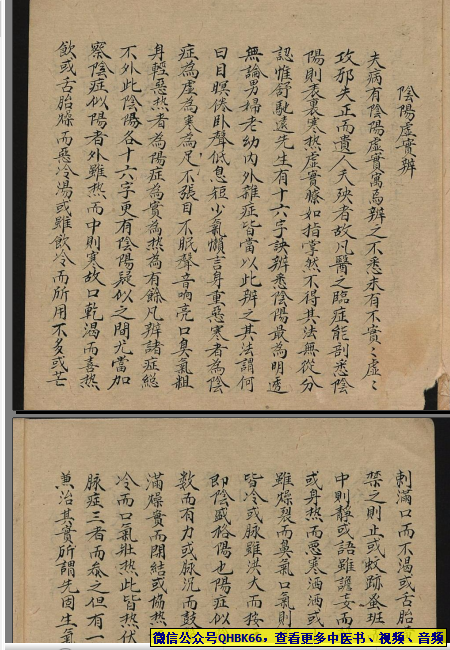 陰陽虛實辨
夫病有陰陽虛實寓焉辨之不悉未有不實〻虛〻
攻邪失正而遺人夭殃者故凡醫之臨症能剖悉陰
陽則表裏寒熱虛實瞭如指掌然不得其法無從分
認惟舒馳遠先生有十六字訣辨悉陰陽最為明透
無論男婦老幼內外雜症皆當以此辨之其法謂何
曰目瞑倦臥聲低息短少氣懶言身重惡寒者為陰
症為虛為寒為足不張目不眠聲音响亮口臭氣粗
身輕惡热者為陽症為實為热為有餘凡辨諸症總
不外此陰陽各十六字更有陰陽疑似之間尤當加
察陰症似陽者外雖热而中則寒故口乾渴而喜热
飲或舌胎燥而惡冷湯或雖飲冷而所用不多或芒
刺滿口而不渴或舌胎
禁之則止或蚊跡蚤班
中則靜或語雖譫妄而
或身热而惡寒洒洒或
雖燥裂而鼻氣口氣則
皆冷或脉雖洪大而按
即陰盛格陽也陽症似
數而有力或脉沉而鼓
滿燥實而閉結或協热
冷而口氣壯热此皆热伏
脉症三者而叅之但有一
兼治其實所謂先固生氣
微信公众号QHBK66，查看更多中医书、视频、音频